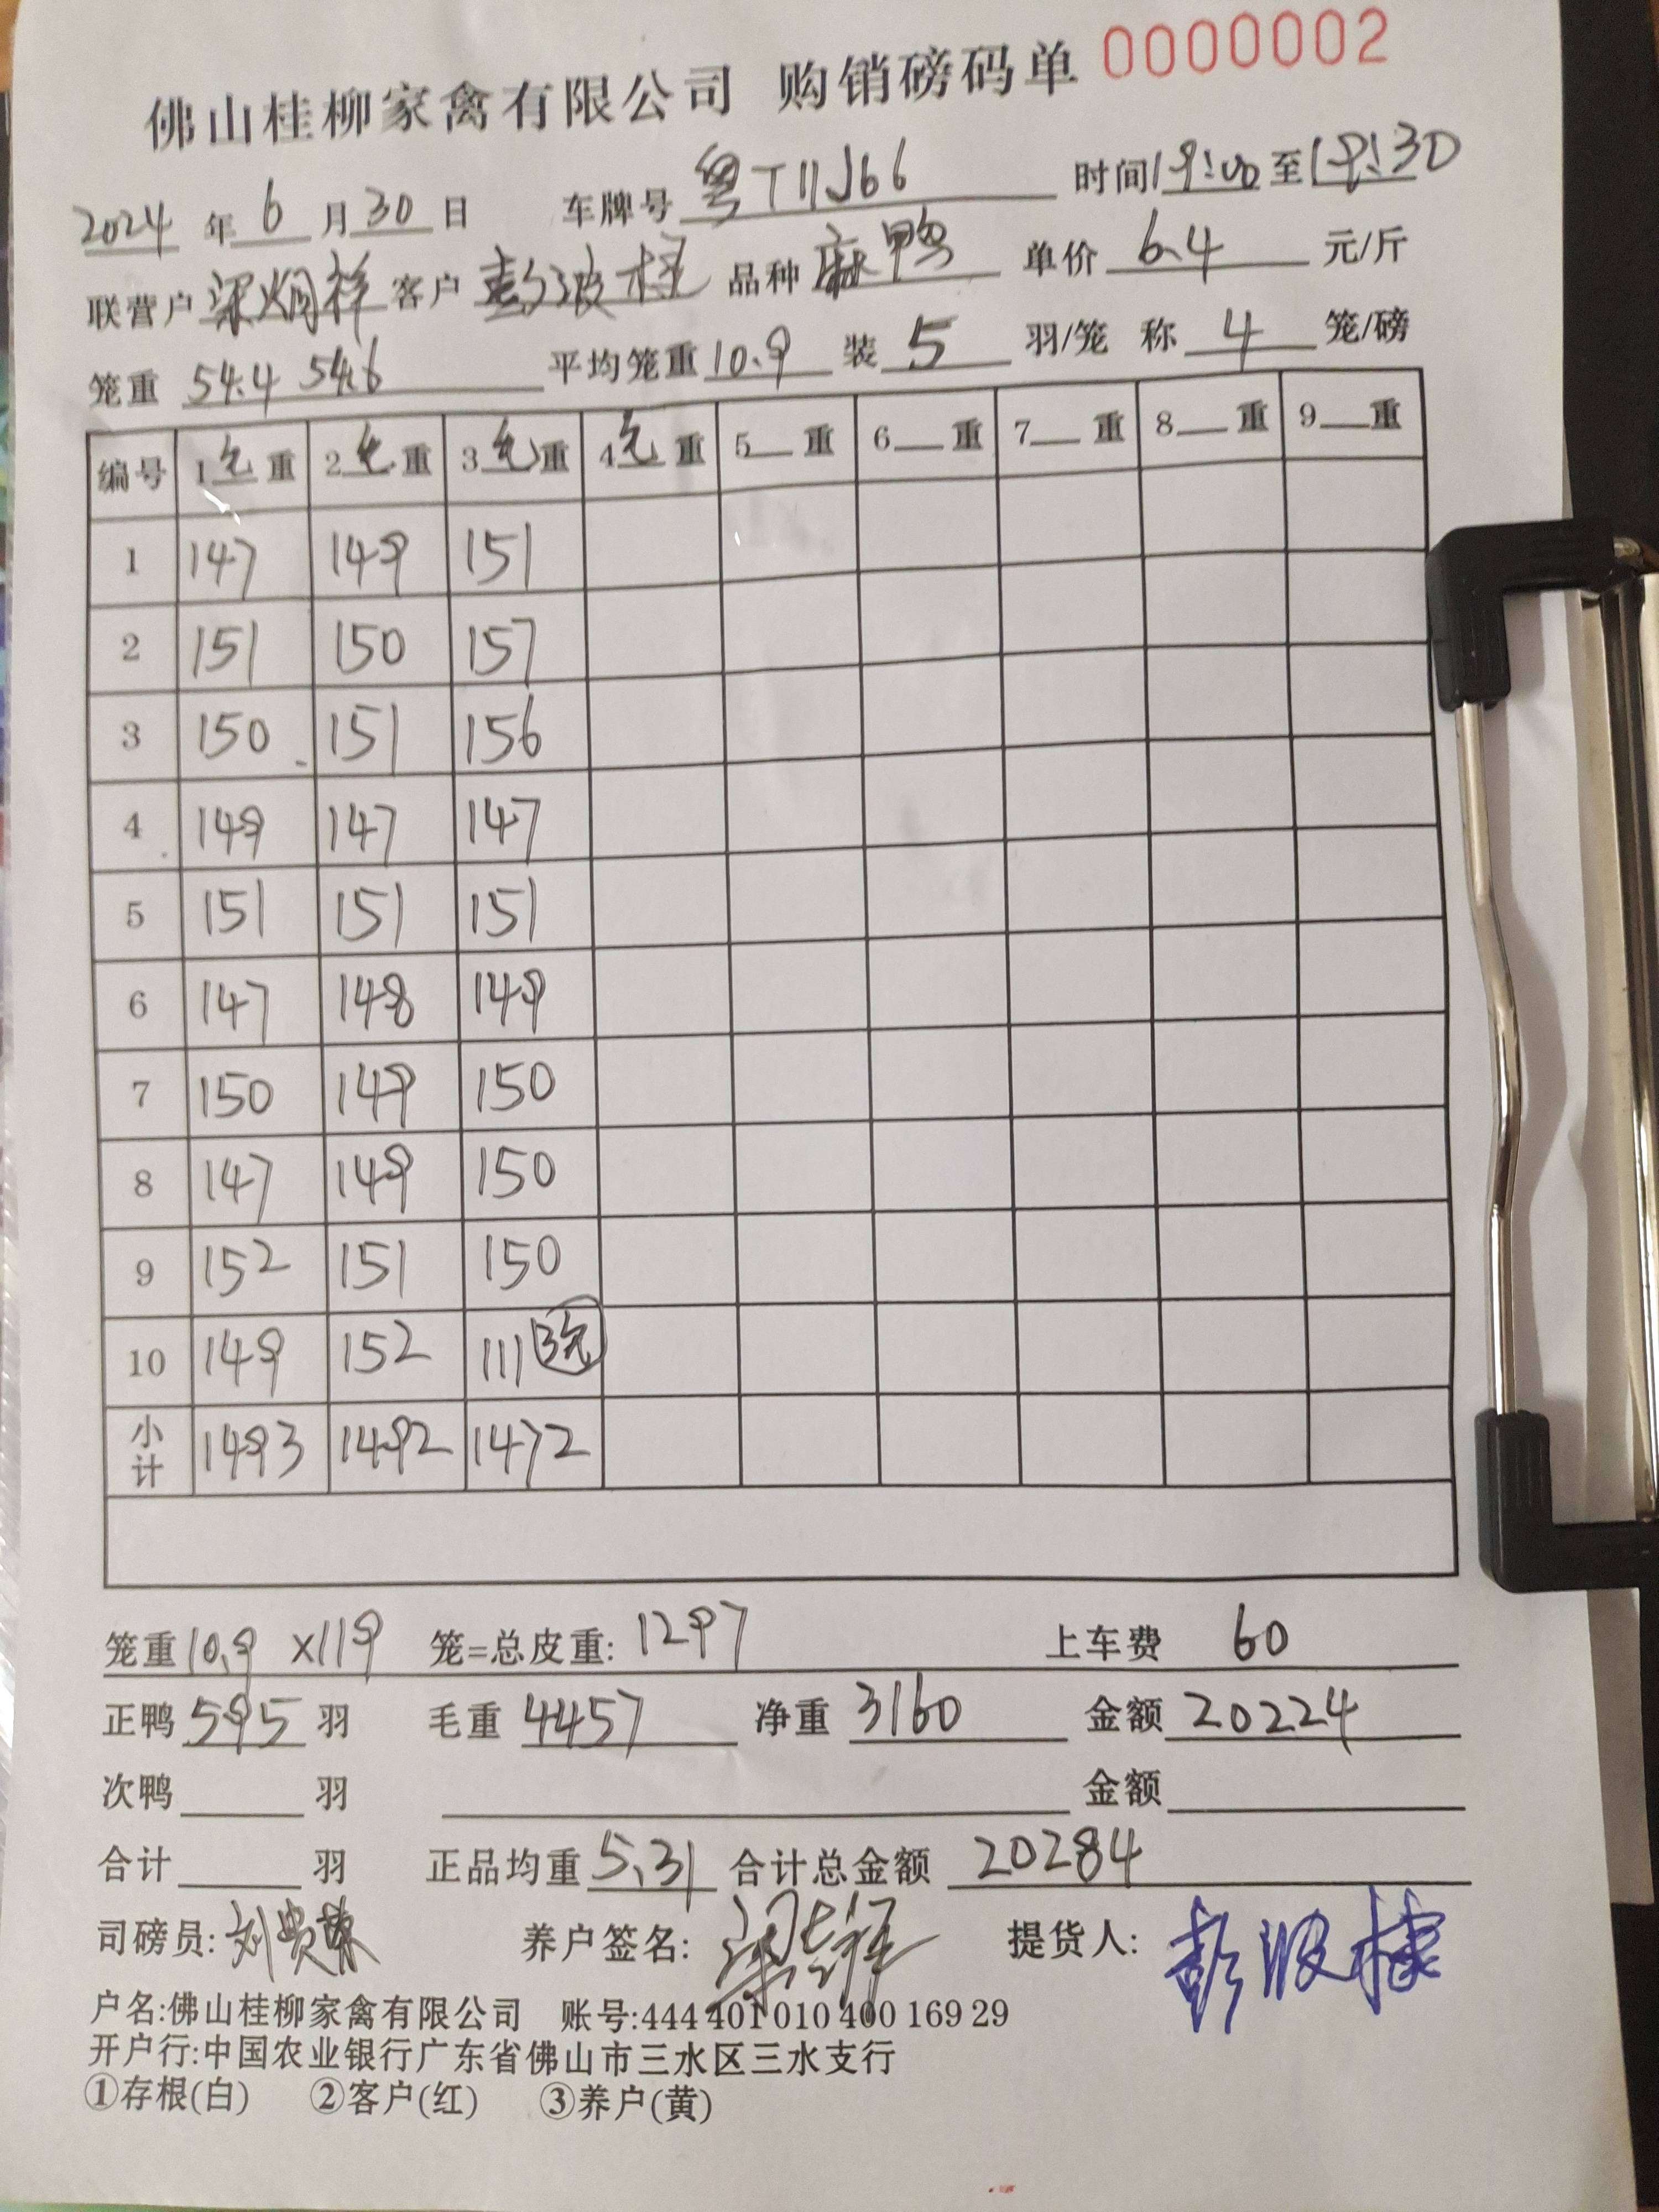 佛山桂柳家禽有限公司 购销磅码单 0000002
2024 年 6 月 30 日 车牌号 粤T11J66 时间 19:00 至 19:30
联营户 梁炯祥 客户 彭波棣 品种 麻鸭 单价 6.4 元/斤
笼重 54.4 54.6 平均笼重 10.9 装 5 羽/笼 称 4 笼/磅
编号 1毛重 2毛重 3毛重 4毛重 5 重 6 重 7 重 8 重 9 重
1 147 149 151
2 151 150 157
3 150 151 156
4 149 147 147
5 151 151 151
6 147 148 149
7 150 149 150
8 147 149 150
9 152 151 150
10 149 152 111
小计 1493 1492 1472
笼重 10.9 ×119 笼=总皮重: 1297 上车费 60
正鸭 595 羽 毛重 4457 净重 3160 金额 20224
次鸭 羽 金额
合计 羽 正品均重 5.31 合计总金额 20284
司磅员: 刘贵 养户签名: 提货人: 彭波棣
户名:佛山桂柳家禽有限公司 账号:444 401 010 400 169 29
开户行:中国农业银行广东省佛山市三水区三水支行
①存根(白) ②客户(红) ③养户(黄)